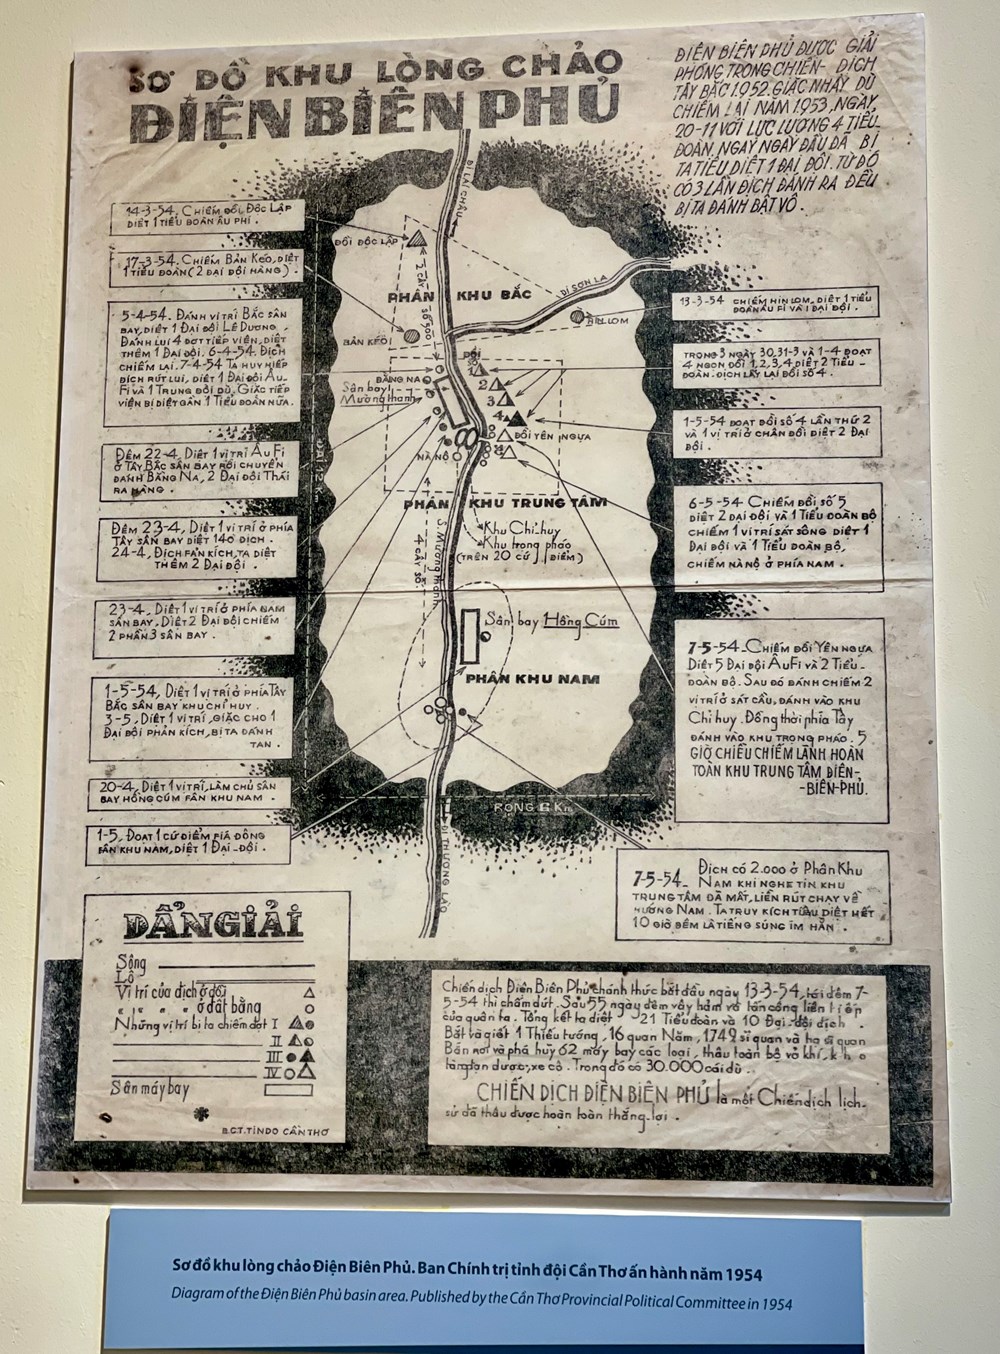 SƠ ĐỒ KHU LÒNG CHẢO
ĐIỆN BIÊN PHỦ
ĐIỆN BIÊN PHỦ ĐƯỢC GIẢI
PHÓNG TRONG CHIẾN-DỊCH
TÂY BẮC 1952. GIẶC NHẢY DÙ
CHIẾM LẠI NĂM 1953, NGÀY
20-11 VỚI LỰC LƯỢNG 4 TIỂU
ĐOÀN, NGAY NGÀY ĐẦU ĐÃ BỊ
TA TIÊU DIỆT 1 ĐẠI ĐỘI. TỪ ĐÓ
CÓ 3 LẦN ĐỊCH ĐÁNH RA ĐỀU
BỊ TA ĐÁNH BẬT VÔ.
14-3-54, CHIẾM ĐỒI ĐỘC LẬP
DIỆT 1 TIỂU ĐOÀN ÂU PHI.
17-3-54. CHIẾM BẢN KÉO, DIỆT
1 TIỂU ĐOÀN (2 ĐẠI ĐỘI HÀNG).
5-4-54. ĐÁNH VỊ TRÍ BẮC SÂN
BAY, DIỆT 1 ĐẠI ĐỘI LÊ DƯƠNG.
ĐÁNH LUI 4 ĐỢT TIẾP VIỆN, DIỆT
THÊM 1 ĐẠI ĐỘI. 6-4-54. ĐỊCH
CHIẾM LẠI. 7-4-54 TA HUY HIẾP
ĐỊCH RÚT LUI, DIỆT 1 ĐẠI ĐỘI ÂU-
FI VÀ 1 TRUNG ĐỘI DÙ, GIẶC TIẾP
VIỆN BỊ DIỆT GẦN 1 TIỂU ĐOÀN NỮA.
ĐÊM 22-4, DIỆT 1 VỊ TRÍ ÂU FI
Ở TÂY BẮC SÂN BAY RỒI CHUYỂN
ĐÁNH BĂNG NA, 2 ĐẠI ĐỘI THÁI
RA HÀNG.
ĐÊM 23-4, DIỆT 1 VỊ TRÍ Ở PHÍA
TÂY SÂN BAY DIỆT 140 ĐỊCH.
24-4, ĐỊCH FẢN KÍCH, TA DIỆT
THÊM 2 ĐẠI ĐỘI.
23-4, DIỆT 1 VỊ TRÍ Ở PHÍA NAM
SÂN BAY, DIỆT 2 ĐẠI ĐỘI CHIẾM
2 PHẦN 3 SÂN BAY.
1-5-54, DIỆT 1 VỊ TRÍ Ở PHÍA TÂY
BẮC SÂN BAY KHU CHỈ HUY.
3-5, DIỆT 1 VỊ TRÍ, GIẶC CHO 1
ĐẠI ĐỘI PHẢN KÍCH, BỊ TA ĐÁNH
TAN.
20-4, DIỆT 1 VỊ TRÍ, LÀM CHỦ SÂN
BAY HỒNG CÚM FÂN KHU NAM.
1-5, ĐOẠT 1 CỨ ĐIỂM FIÁ ĐÔNG
FÂN KHU NAM, DIỆT 1 ĐẠI-ĐỘI.
ĐI LAI CHÂU
ĐỒI ĐỘC LẬP
PHÂN KHU BẮC
ĐI SƠN LA
HIN LOM
BẢN KÉO
BĂNG NA
Sân bay
Mường thanh
ĐỒI
SỐ 1
2
3
4
ĐỒI YÊN NGỰA
NÀ NỌ
PHÂN KHU TRUNG TÂM
Khu Chỉ huy
Khu trọng pháo
(TRÊN 20 CỨ ĐIỂM)
S. Mường thanh
4 CÂY SỐ
Sân bay Hồng Cúm
PHÂN KHU NAM
RỘNG 6 Km
ĐI THƯỢNG LÀO
13-3-54 CHIẾM HIN LOM, DIỆT 1 TIỂU
ĐOÀN ÂU FI VÀ 1 ĐẠI ĐỘI.
TRONG 3 NGÀY 30, 31-3 VÀ 1-4 ĐOẠT
4 NGỌN ĐỒI 1, 2, 3, 4 DIỆT 2 TIỂU-
ĐOÀN. ĐỊCH LẤY LẠI ĐỒI SỐ 4.
1-5-54 ĐOẠT ĐỒI SỐ 4 LẦN THỨ 2
VÀ 1 VỊ TRÍ Ở CHÂN ĐỒI DIỆT 2 ĐẠI
ĐỘI.
6-5-54 CHIẾM ĐỒI SỐ 5
DIỆT 2 ĐẠI ĐỘI VÀ 1 TIỂU ĐOÀN BỘ
CHIẾM 1 VỊ TRÍ SÁT SÔNG DIỆT 1
ĐẠI ĐỘI VÀ 1 TIỂU ĐOÀN BỘ,
CHIẾM NÀ NỌ Ở PHÍA NAM.
7-5-54_ CHIẾM ĐỒI YÊN NGỰA
DIỆT 5 ĐẠI ĐỘI ÂU FI VÀ 2 TIỂU-
ĐOÀN BỘ. SAU ĐÓ ĐÁNH CHIẾM 2
VỊ TRÍ Ở SÁT CẦU, ĐÁNH VÀO KHU
Chỉ huy. Đồng thời phía Tây
ĐÁNH VÀO KHU TRỌNG PHÁO. 5
GIỜ CHIỀU CHIẾM LÃNH HOÀN
TOÀN KHU TRUNG TÂM ĐIỆN-
-BIÊN-PHỦ.
7-5-54_ ĐỊCH CÓ 2.000 Ở PHÂN KHU
NAM KHI NGHE TIN KHU
TRUNG TÂM ĐÃ MẤT, LIỀN RÚT CHẠY VỀ
HƯỚNG NAM. TA TRUY KÍCH TIÊU DIỆT HẾT
10 GIỜ ĐÊM LÀ TIẾNG SÚNG IM HẲN.
DẪN GIẢI
Sông
Lộ
Vị trí của địch ở đồi
" " " ở đất bằng
Những vị trí bị ta chiếm đợt I
II
III
IV
Sân máy bay
B.C.T. TỈNH ĐỘ CẦN THƠ
Chiến dịch Điện Biên Phủ chánh thức bắt đầu ngày 13-3-54, tới đêm 7-
5-54 thì chấm dứt. Sau 55 ngày đêm vây hãm và tấn công liên tiếp
của quân ta. Tổng kết ta diệt 21 Tiểu đoàn và 10 Đại-đội địch.
Bắt và giết 1 Thiếu tướng, 16 quan Năm, 1749 sĩ quan và hạ sĩ quan
Bắn rơi và phá hủy 62 máy bay các loại, thâu toàn bộ võ khí, kho
tàng đạn dược, xe cộ. Trong đó có 30.000 cái dù.
CHIẾN DỊCH ĐIỆN BIÊN PHỦ là một Chiến dịch lịch-
sử đã thâu được hoàn toàn thắng-lợi.
Sơ đồ khu lòng chảo Điện Biên Phủ. Ban Chính trị tỉnh đội Cần Thơ ấn hành năm 1954
Diagram of the Điện Biên Phủ basin area. Published by the Cần Thơ Provincial Political Committee in 1954